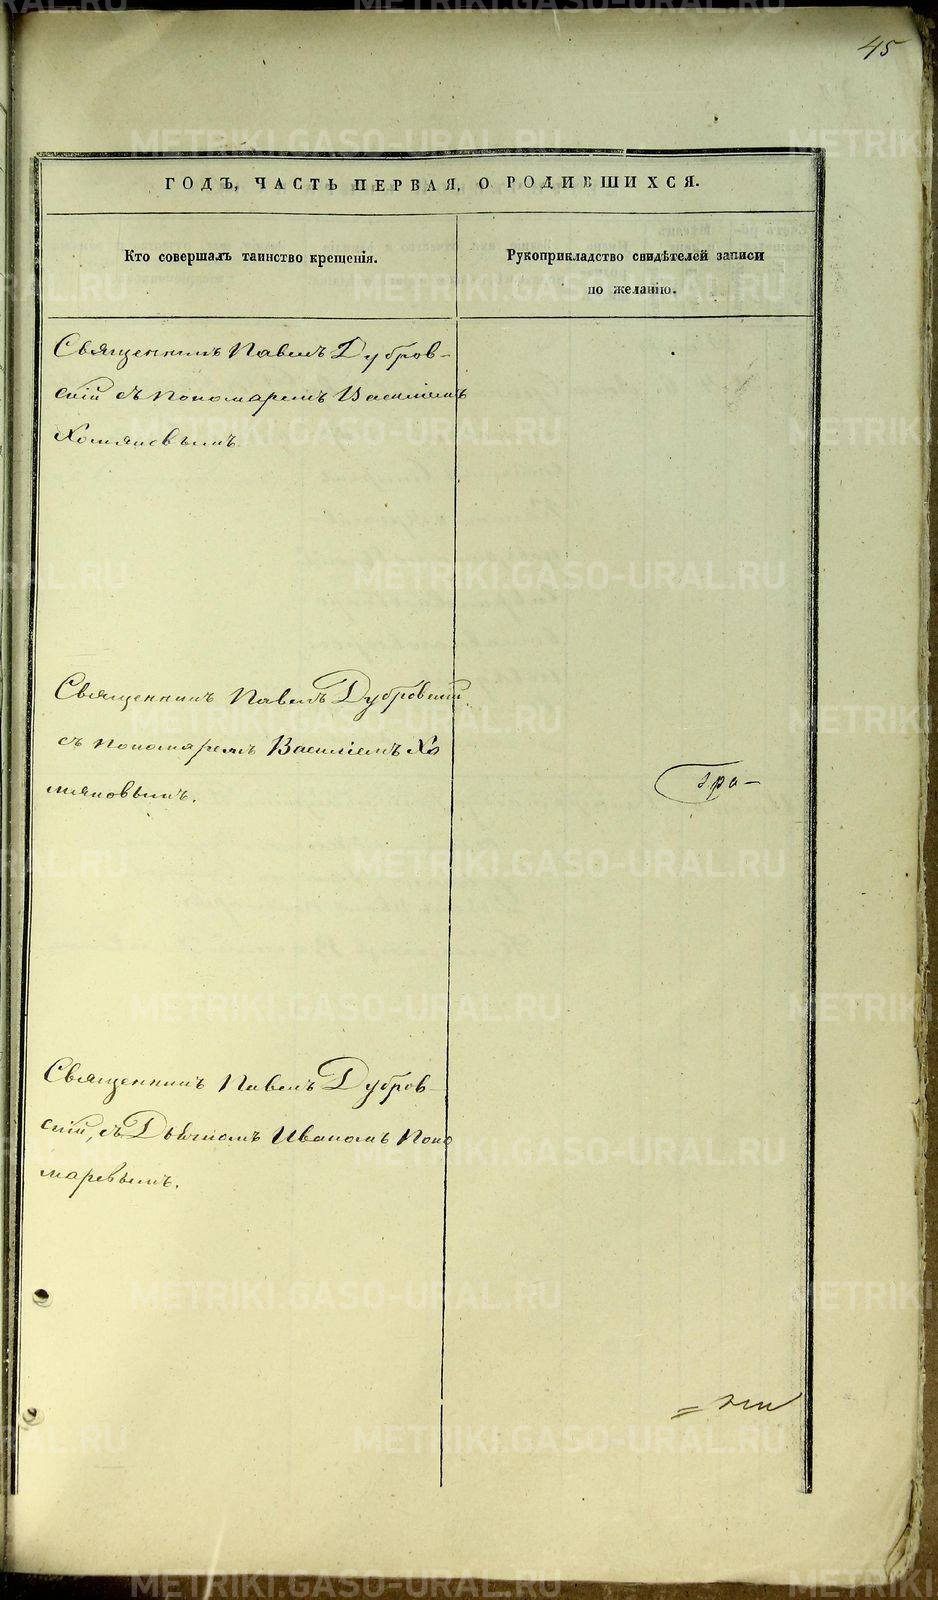 45
ГОДЪ, ЧАСТЬ ПЕРВАЯ, О РОДИВШИХСЯ.
Кто совершалъ таинство крещенія.
Рукоприкладство свидѣтелей записи
по желанію.
Священникъ Павелъ Дубров-
скій съ пономаремъ Василіемъ
Хомяковымъ
Священникъ Павелъ Дубровскій
съ пономаремъ Василіемъ Хо
мяковымъ.
Священникъ Павелъ Дубров-
скій, съ Дьячкомъ Иваномъ Поно
маревымъ.
METRIKI.GASO-URAL.RU